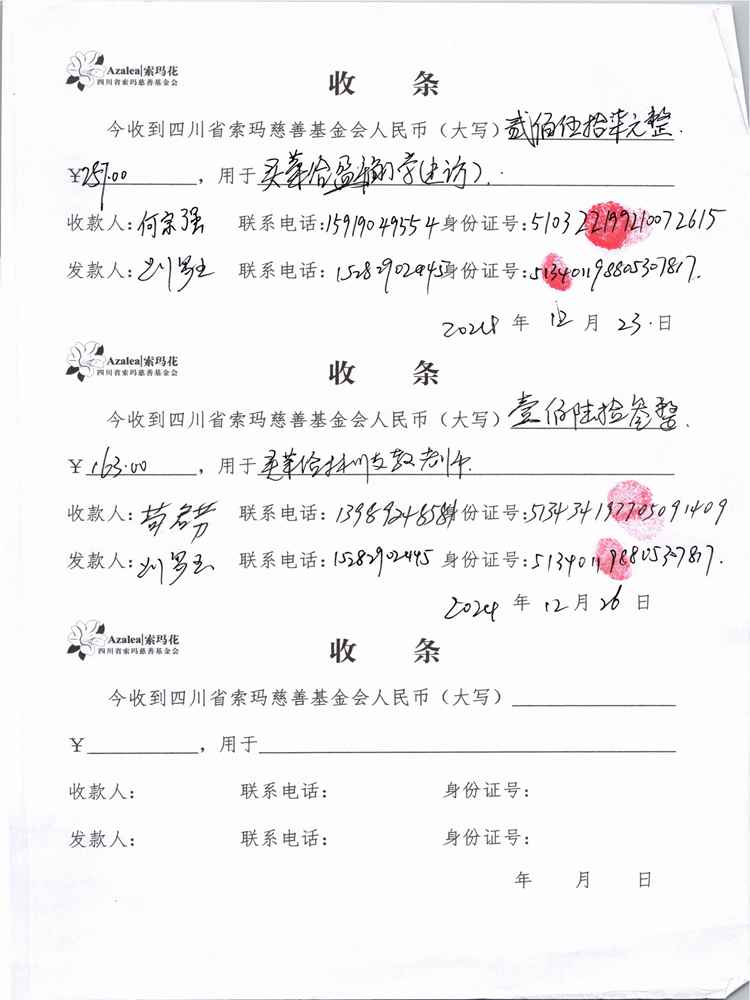 Azalea|索玛花
四川省索玛慈善基金会
收 条
今收到四川省索玛慈善基金会人民币（大写）贰佰伍拾柒元整.
¥257.00，用于买菜给
收款人：何宗强 联系电话：15919049554 身份证号：510322199210072615
发款人： 联系电话：15282902445 身份证号：513401198805307817.
2024 年 12 月 23 日
Azalea|索玛花
四川省索玛慈善基金会
收 条
今收到四川省索玛慈善基金会人民币（大写）壹佰陆拾叁整
¥163.00，用于买菜给支教老师
收款人： 联系电话： 身份证号：513434197705091409
发款人： 联系电话：15282902445 身份证号：513401198805307817.
2024 年 12 月 26 日
Azalea|索玛花
四川省索玛慈善基金会
收 条
今收到四川省索玛慈善基金会人民币（大写）
¥，用于
收款人： 联系电话： 身份证号：
发款人： 联系电话： 身份证号：
年 月 日